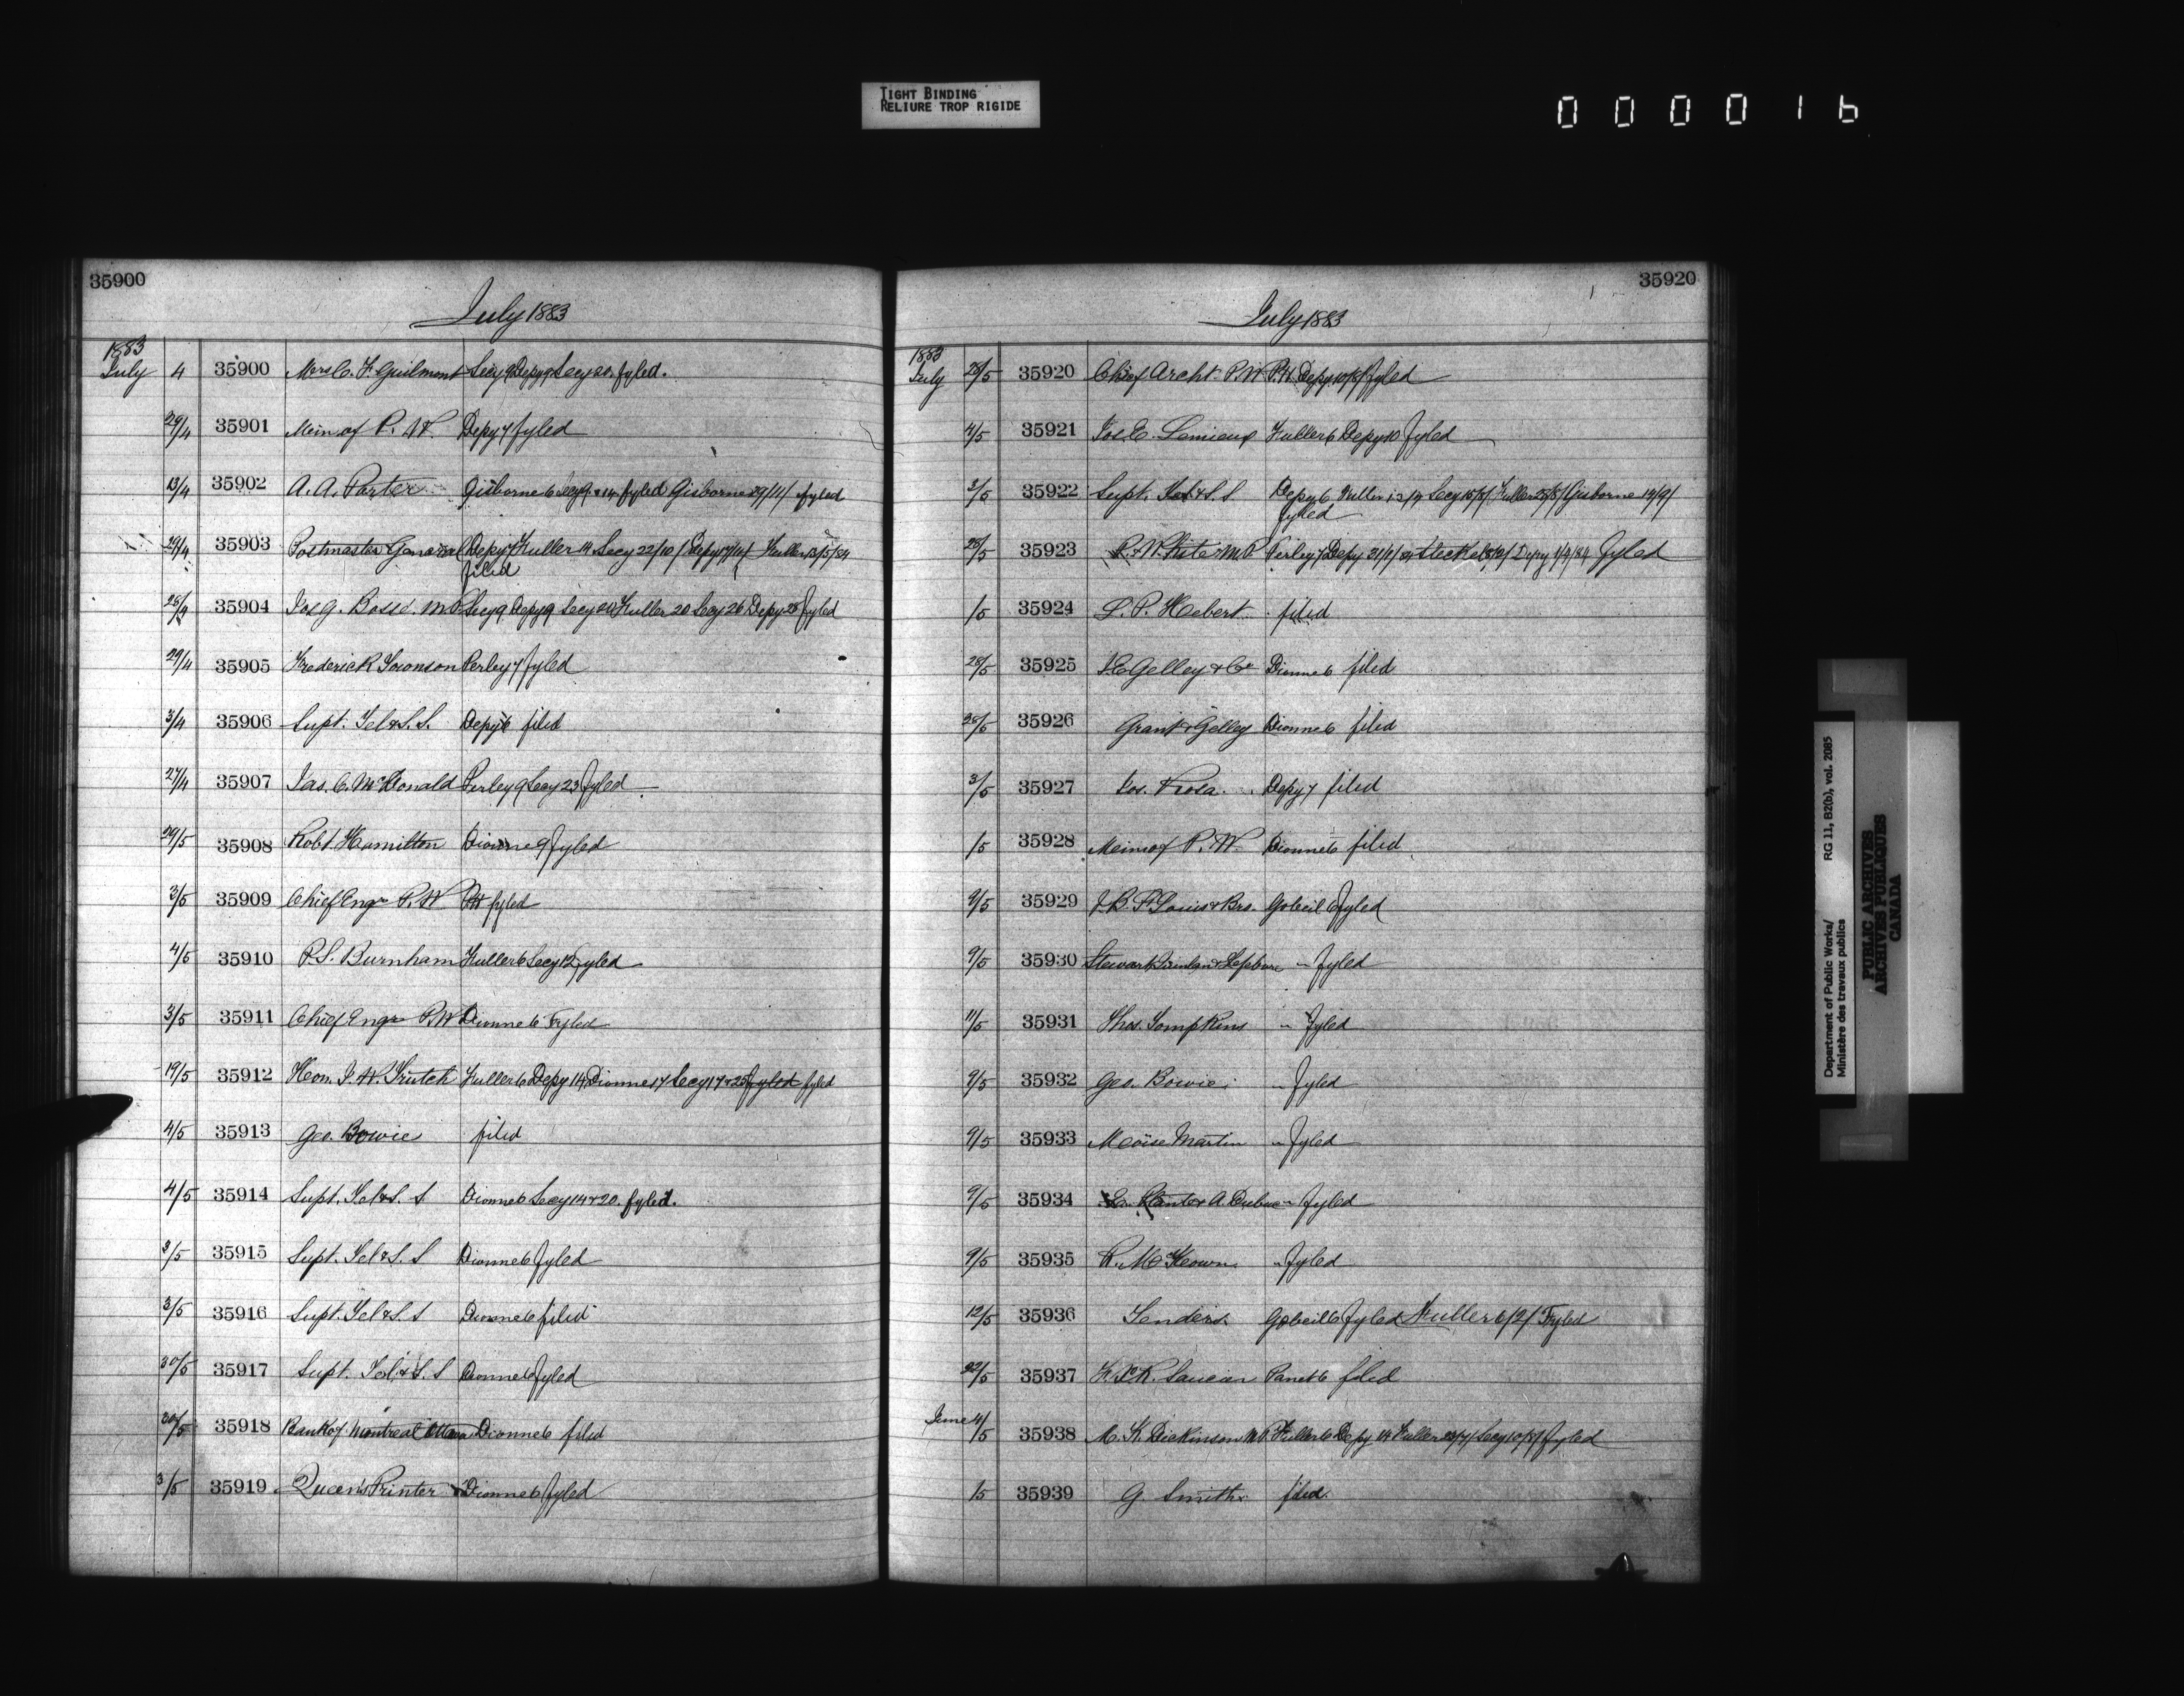 TIGHT BINDING
RELIURE TROP RIGIDE
000016
35900
July 1883
1883
July 4 35900 Mrs C. F. Guilmont Secy 9 Depy 9 Secy 20. fyled.
29/4 35901 Mem of P. W. Depy 7 fyled
13/4 35902 A. A. Porter Gisborne 6 Secy 9 & 14 fyled Gisborne 29/11/ fyled
29/4 35903 Postmaster General Depy 7 Fuller 14 Secy 22/10/ Depy 17/11/ Fuller 13/5/84
filed
28/ 35904 Jos G. Bossé. M.P. Secy 9 Depy 9 Secy 20 Fuller 20 Secy 26 Depy 28 fyled
29/4 35905 Frederick Soronson Perley 7 fyled
3/4 35906 Supt. Tel & S. S. Depy 6 filed
27/4 35907 Jas. C. McDonald Perley 9 Secy 23 fyled
29/5 35908 Robt Hamilton Dionne 9 fyled
3/5 35909 Chief Engr P. W P.W fyled
4/5 35910 P. S. Burnham Fuller 6 Secy 12 fyled
3/5 35911 Chief Engr P.W Dionne 6 Fyled
19/5 35912 Hon. J. W. Trutch Fuller 6 Depy 14 Dionne 17 Secy 17 & 25 fyled fyled
4/5 35913 Geo. Bowie filed
4/5 35914 Supt. Tel & S. S Dionne 6 Secy 14 & 20. fyled.
3/5 35915 Supt. Tel & S. S Dionne 6 fyled
3/5 35916 Supt. Tel & S. S Dionne 6 filed
30/5 35917 Supt. Tel. & S. S Dionne 6 fyled
30/5 35918 Bank of Montreal Ottawa Dionne 6 filed
3/5 35919 Queen's Printer Dionne 6 fyled
35920
July 1883
1883
July 28/5 35920 Chief Archt. P.W P.W. Depy 10/8/ fyled
4/5 35921 Jos. E. Lemieux Fuller 6 Depy 10 fyled
3/5 35922 Supt. Tel & S. S Depy 6 Fuller Secy 15/8/ Fuller 25/8/ Gisborne 13/9/
fyled
28/5 35923 P. White M.P. Perley 7 Depy 21/1/84 Steckel Depy 1/4/84 fyled
/5 35924 L. P. Hebert filed
28/5 35925 J. E. Gelley & Co Dionne 6 filed
28/5 35926 Grant & Gelley Dionne 6 filed
3/5 35927 Jos. Rosa. Depy 7 filed
/5 35928 Mem of P. W. Dionne 6 filed
9/5 35929 J. B. F. Louis & Bro. Gobeil 6 fyled
9/5 35930 Stewart & Lefebvre " fyled
11/5 35931 Thos. Tompkins " fyled
9/5 35932 Geo. Bowie " fyled
9/5 35933 Moïse Martin " fyled
9/5 35934 A. Dubuc " fyled
9/5 35935 R. McKeown. " fyled
12/5 35936 Tenders. Gobeil 6 fyled Fuller 6/2/ Fyled
22/5 35937 Saucier Panet 6 filed
June 4/5 35938 M. K. Dickinson M.P. Fuller 6 Depy 14 Fuller 23/7/ Secy 10/8/ fyled
/5 35939 G. Smith. filed.
Department of Public Works/
Ministère des travaux publics
RG 11, B2(b), vol. 2085
PUBLIC ARCHIVES
ARCHIVES PUBLIQUES
CANADA